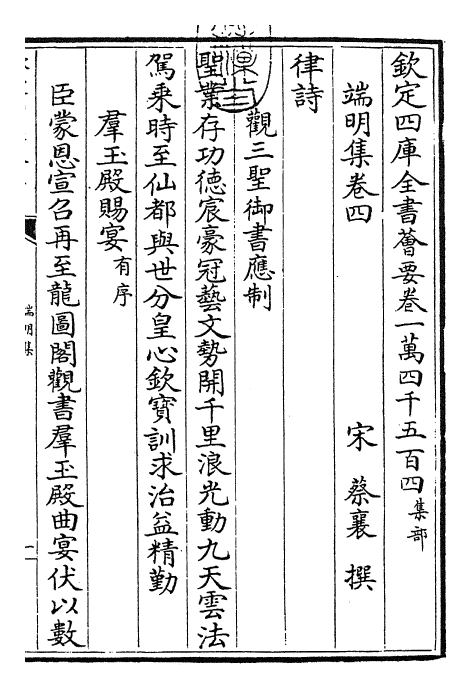 欽定四庫全書薈要卷一萬四千五百四集部
端明集卷四
宋 蔡襄 撰
律詩
觀三聖御書應制
聖業存功德宸豪冠藝文勢開千里浪光動九天雲法
駕乘時至仙都與世分皇心欽寶訓求治益精勤
羣玉殿賜宴有序
臣蒙恩宣召再至龍圖閣觀書羣玉殿曲宴伏以數
端明集
一